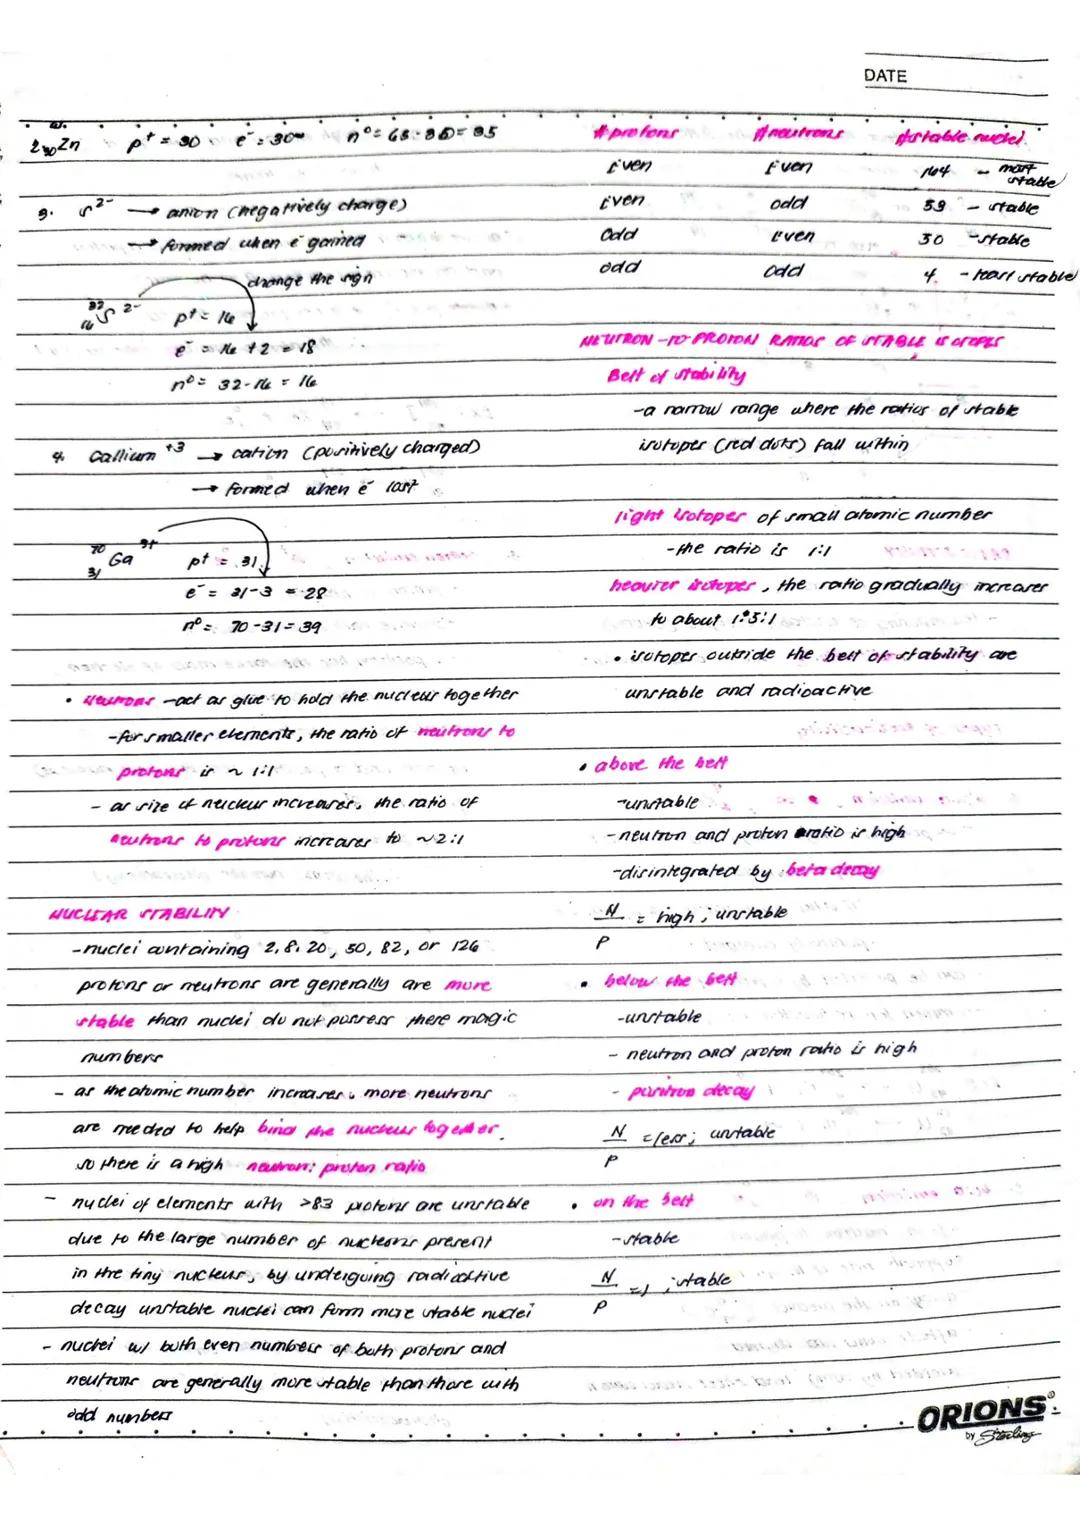 DATE
2. 65 30 Zn p⁺ = 30 e⁻ = 30 n° = 65-30 = 35
3. S²⁻ → anion (negatively charge)
→ formed when e⁻ gained
change the sign
32 16 S 2- p⁺ = 16
e⁻ = 16 + 2 = 18
n° = 32-16 = 16
4. Gallium +3 → cation (positively charged)
→ formed when e⁻ lost
70 31 Ga 3+ p⁺ = 31
e⁻ = 31-3 = 28
n° = 70-31 = 39
• Neutrons - act as glue to hold the nucleus together
- for smaller elements, the ratio of neutrons to
protons is ~ 1:1
- as size of nucleus increases, the ratio of
neutrons to protons increases to ~2:1
NUCLEAR STABILITY
- nuclei containing 2, 8, 20, 50, 82, or 126
protons or neutrons are generally are more
stable than nuclei do not possess there magic
numbers
- as the atomic number increases, more neutrons
are needed to help bind the nucleus together,
so there is a high neutron: proton ratio
- nuclei of elements with >83 protons are unstable
due to the large number of nucleons present
in the tiny nucleus, by undergoing radioactive
decay unstable nuclei can form more stable nuclei
- nuclei w/ both even numbers of both protons and
neutrons are generally more stable than those with
odd numbers
# protons # neutrons # stable nuclei
Even Even 164 - most stable
Even odd 53 - stable
Odd Even 50 - stable
odd Odd 4 - least stable
NEUTRON-TO-PROTON RATIOS OF STABLE ISOTOPES
Belt of stability
- a narrow range where the ratios of stable
isotopes (red dots) fall within
light isotopes of small atomic number
- the ratio is 1:1
heavier isotopes, the ratio gradually increases
to about 1.5:1
• isotopes outside the belt of stability are
unstable and radioactive
• above the belt
- unstable
- neutron and proton ratio is high
- disintegrated by beta decay
N/P = high ; unstable
• below the belt
- unstable
- neutron and proton ratio is high
- positron decay
N/P = less ; unstable
• on the belt
- stable
N/P = 1 ; stable
ORIONS®
by Sterling